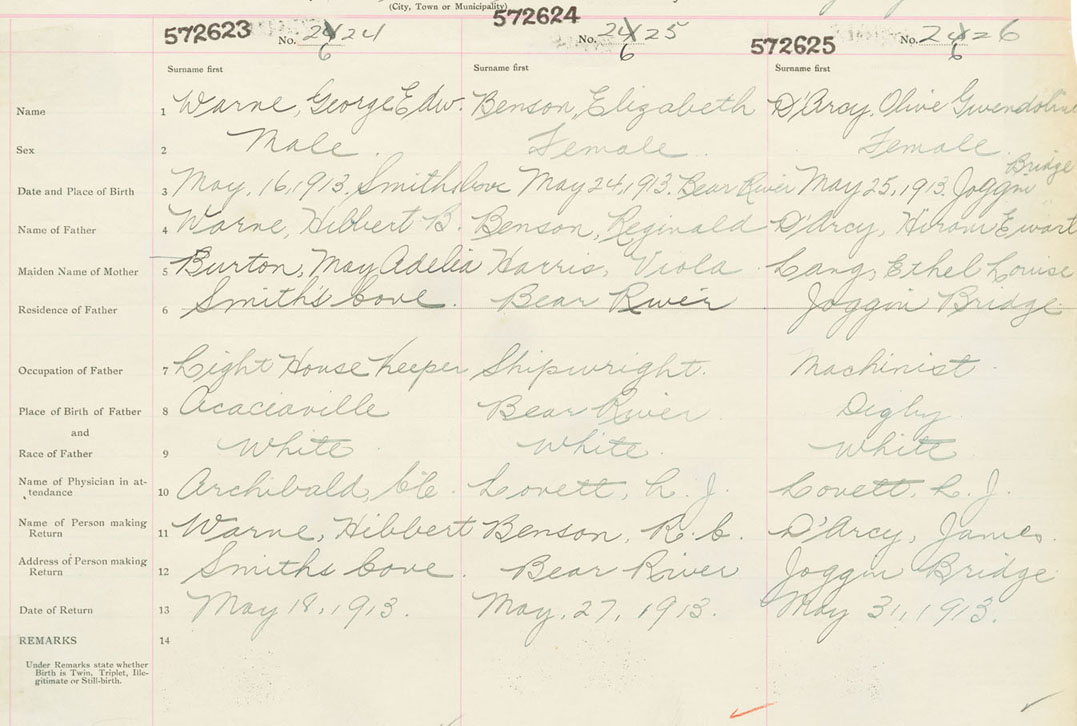 (City, Town or Municipality)
572623 No. 24 24 6
572624 No. 24 25 6
572625 No. 24 26 6
Surname first Surname first Surname first
Name 1 Warne, George Edw. Benson, Elizabeth D'Arcy, Olive Gwendoline
Sex 2 Male. Female. Female.
Date and Place of Birth 3 May, 16, 1913, Smiths Cove May 24, 1913. Bear River May 25, 1913. Joggin Bridge
Name of Father 4 Warne, Hibbert B. Benson, Reginald D'Arcy, Hiram Ewart
Maiden Name of Mother 5 Burton, May Adelia Harris, Viola Lang, Ethel Louise
Residence of Father 6 Smith's Cove. Bear River Joggin Bridge
Occupation of Father 7 Light House Keeper Shipwright. Machinist.
Place of Birth of Father 8 Acaciaville Bear River. Digby.
and
Race of Father 9 White. White. White
Name of Physician in at-
tendance 10 Archibald, Lovett, L. J. Lovett, L. J.
Name of Person making
Return 11 Warne, Hibbert Benson, R. C. D'Arcy, James.
Address of Person making
Return 12 Smiths Cove. Bear River Joggin Bridge
Date of Return 13 May 18, 1913. May, 27, 1913. May 31, 1913.
REMARKS 14
Under Remarks state whether
Birth is Twin, Triplet, Ille-
gitimate or Still-birth.